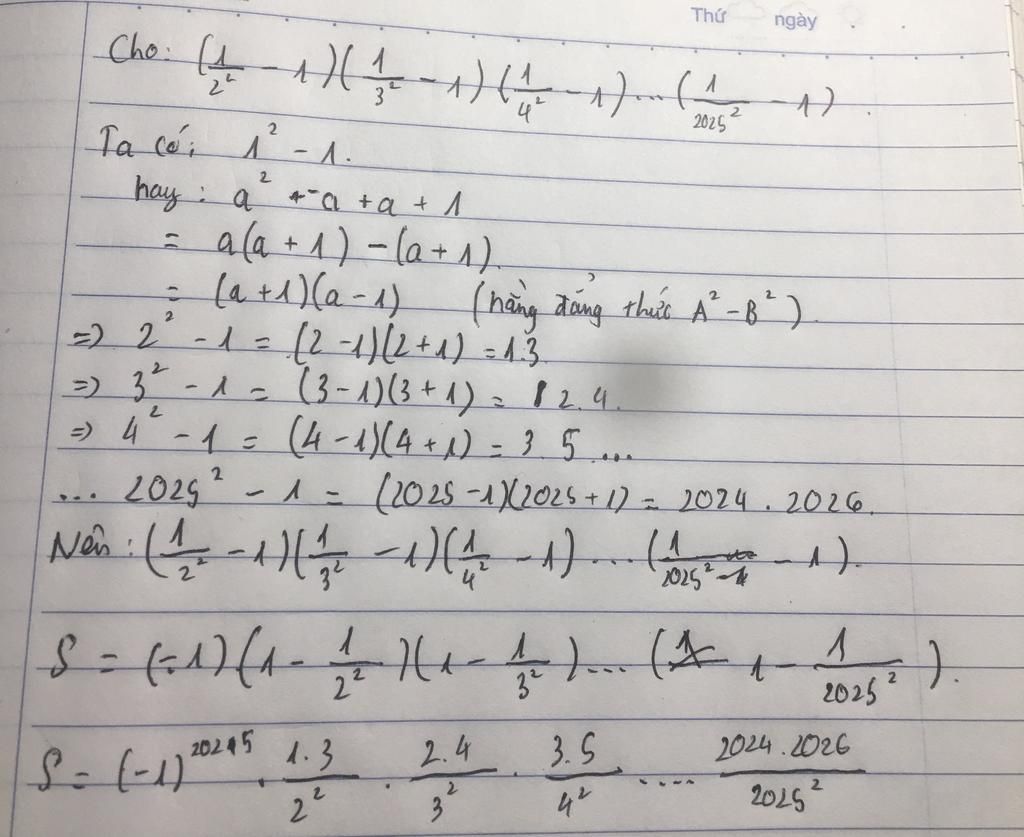 Thứ ngày
Cho: (1/2² - 1)(1/3² - 1)(1/4² - 1)...(1/2025² - 1).
Ta có: 1² - 1.
hay: a² - a + a + 1
= a(a + 1) - (a + 1).
= (a + 1)(a - 1) (hằng đẳng thức A² - B²).
=> 2² - 1 = (2 - 1)(2 + 1) = 1.3
=> 3² - 1 = (3 - 1)(3 + 1) = 2.4.
=> 4² - 1 = (4 - 1)(4 + 1) = 3.5 ...
... 2025² - 1 = (2025 - 1)(2025 + 1) = 2024 . 2026.
Nên: (1/2² - 1)(1/3² - 1)(1/4² - 1)...(1/2025² - 1).
S = (-1)(1 - 1/2²)(1 - 1/3²)...(1 - 1/2025²).
S = (-1) . 1.3/2² . 2.4/3² . 3.5/4² .... 2024.2026/2025²